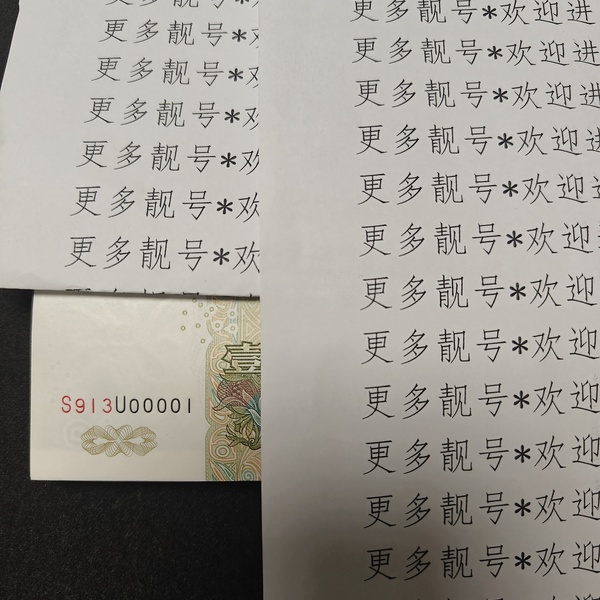 更多靓号*
更多靓号*
更多靓号*欢
更多靓号*欢
更多靓号*欢
更多靓号*欢
壹
S913U00001
更多靓号*欢迎进
更多靓号*欢迎进
更多靓号*欢迎进
更多靓号*欢迎进
更多靓号*欢迎
更多靓号*欢迎
更多靓号*欢迎
更多靓号*欢迎
更多靓号*欢迎
更多靓号*欢迎
更多靓号*欢迎
更多靓号*欢迎